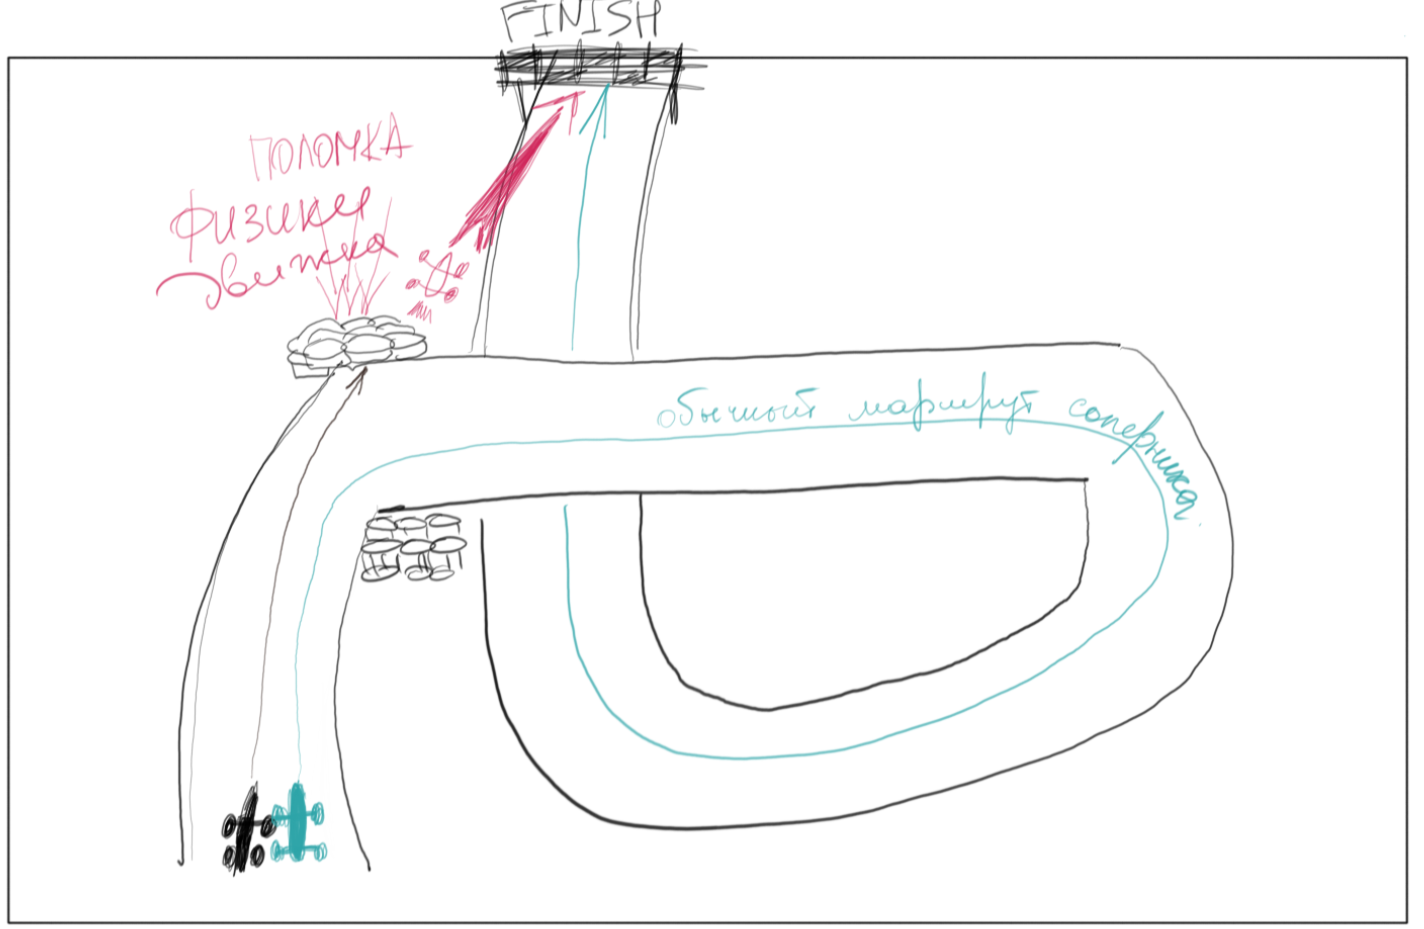 FINISH
ПОЛОМКА
физики
движка
обычный маршрут соперника